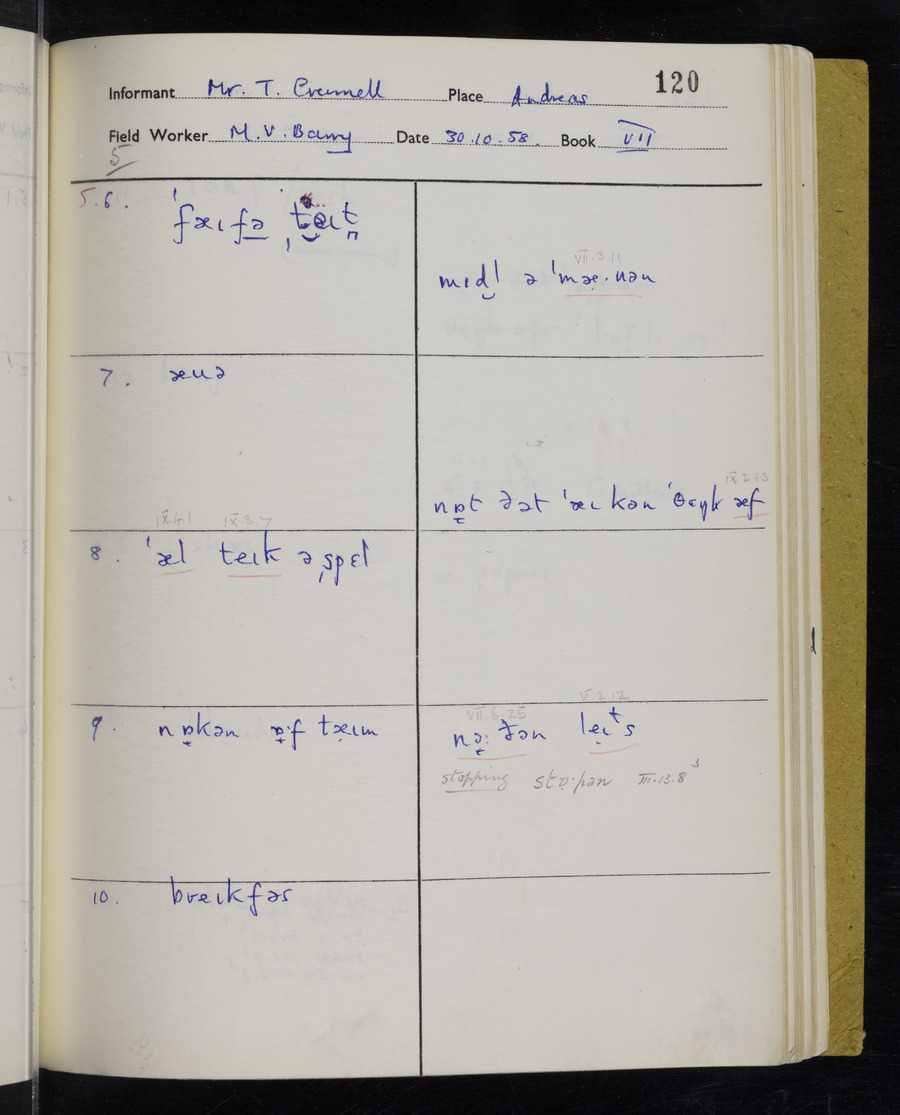 120
Informant Mr. T. Crennell Place Andreas
Field Worker M. V. Barry Date 30.10.58. Book VII
5
5.6. ˈfæɪfə ˌtəɪt
VII.3.11
mɪdl̩ ə ˈmæ̣·nən
7. æuə
IX.2.13
nɒt ðət ˈæɪkən ˈθɛŋk æf
IX.4.1 IX.3.7
8. ˈæl teɪk ə ˌspɛl
9. nɒkən ɒ·f tæ̣ɪm
VII.6.25 V.2.12
nə: ðən leɪts
stopping stɒ·pən III.13.8³
10. breɪkfəs